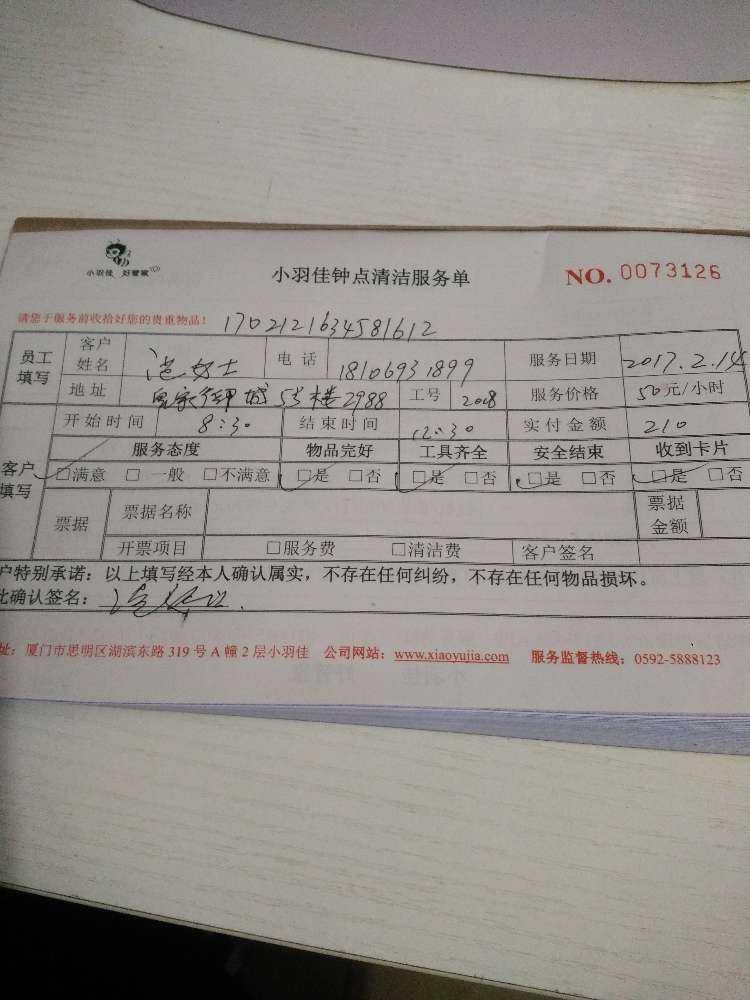 小羽佳 好管家
小羽佳钟点清洁服务单
NO. 0073126
请您于服务前收拾好您的贵重物品! 1702121634581612
员工填写 客户姓名 女士 电话 18106931899 服务日期 2017.2.15
地址 城 5号楼2988 工号 2008 服务价格 50元/小时
客户填写 开始时间 8:30 结束时间 12:30 实付金额 210
服务态度 物品完好 工具齐全 安全结束 收到卡片
□满意 □一般 □不满意 □是 □否 □是 □否 □是 □否 □是 □否
票据 票据名称 票据金额
开票项目 □服务费 □清洁费 客户签名
户特别承诺:以上填写经本人确认属实,不存在任何纠纷,不存在任何物品损坏。
此确认签名:
址:厦门市思明区湖滨东路319号A幢2层小羽佳 公司网站:www.xiaoyujia.com 服务监督热线:0592-5888123